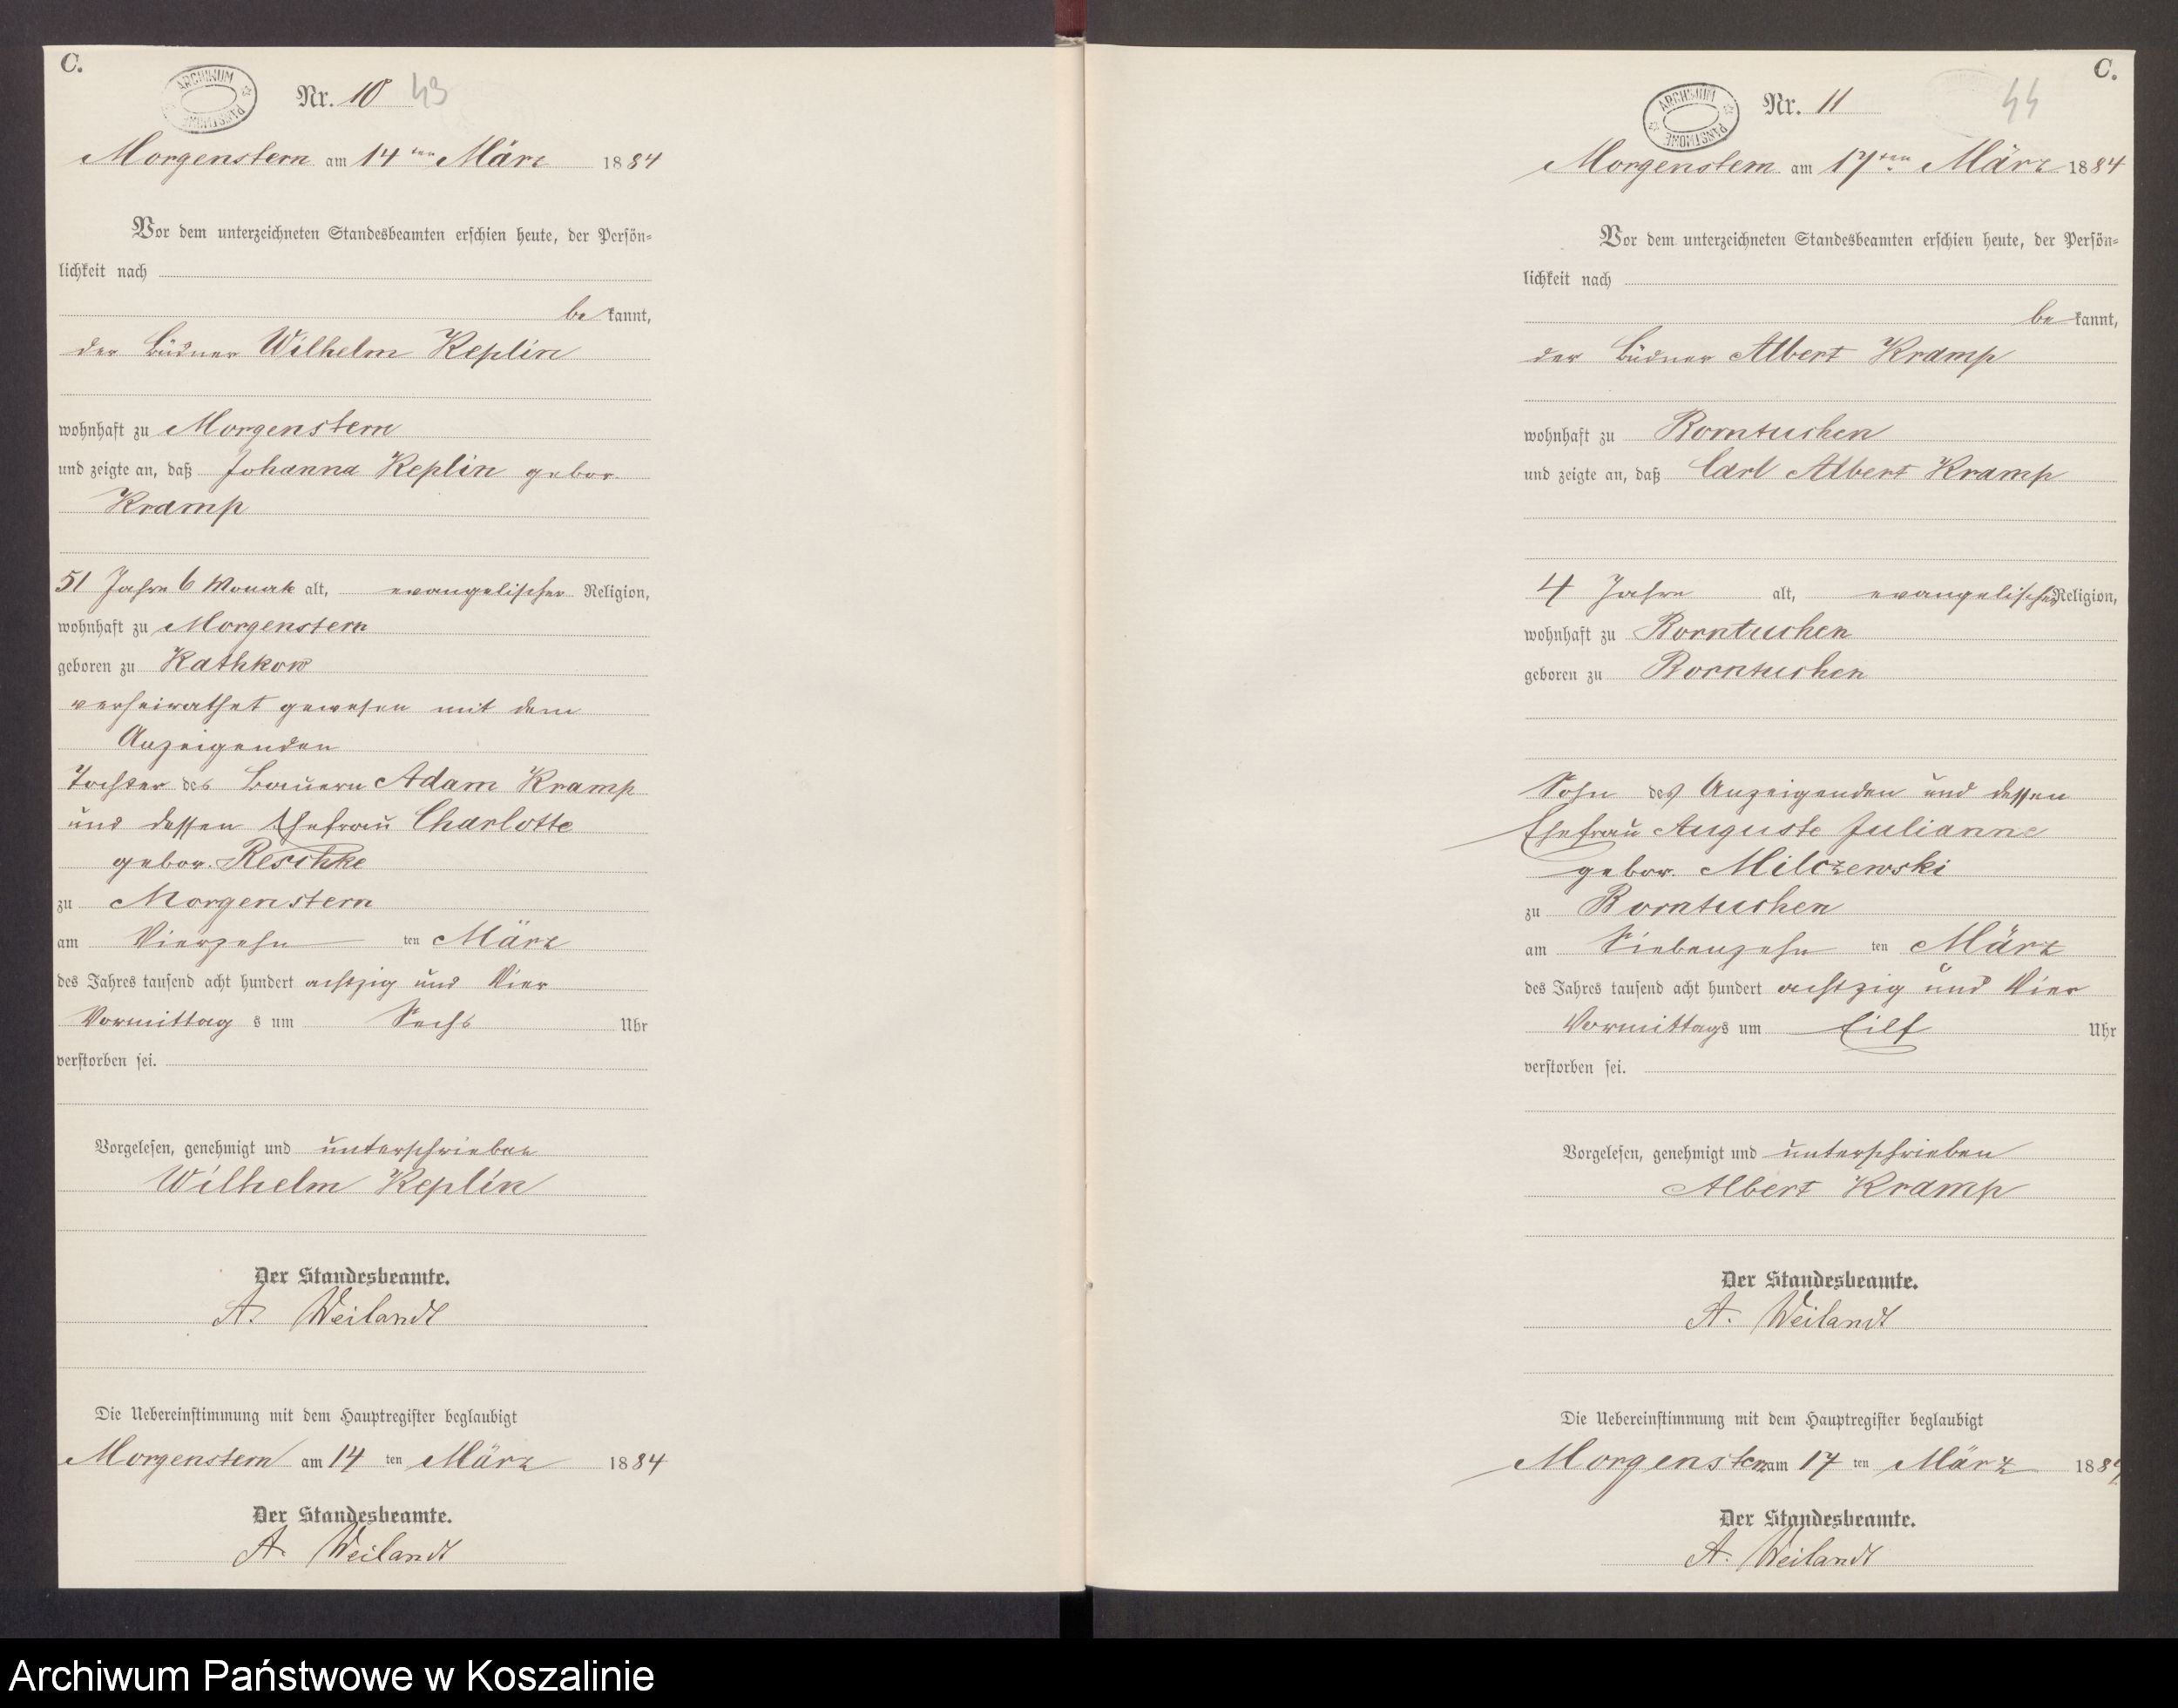 C.
ARCHIWUM PAŃSTWOWE
Nr. 10 43
Morgenstern am 14ten März 1884
Vor dem unterzeichneten Standesbeamten erschien heute, der Persön-
lichkeit nach
be kannt,
der Büdner Wilhelm Replin
wohnhaft zu Morgenstern
und zeigte an, daß Johanna Replin gebor.
Kramp
51 Jahre 6 Monate alt, evangelischer Religion,
wohnhaft zu Morgenstern
geboren zu Kathkow
verheirathet gewesen mit dem
Anzeigenden
Tochter des Bauern Adam Kramp
und dessen Ehefrau Charlotte
gebor. Reschke
zu Morgenstern
am Vierzehn ten März
des Jahres tausend acht hundert achtzig und Vier
Vormittag s um Sechs Uhr
verstorben sei.
Vorgelesen, genehmigt und unterschrieben
Wilhelm Replin
Der Standesbeamte.
A. Weilandt
Die Uebereinstimmung mit dem Hauptregister beglaubigt
Morgenstern am 14 ten März 1884
Der Standesbeamte.
A. Weilandt
C.
ARCHIWUM PAŃSTWOWE
Nr. 11 44
Morgenstern am 17ten März 1884
Vor dem unterzeichneten Standesbeamten erschien heute, der Persön-
lichkeit nach
be kannt,
der Büdner Albert Kramp
wohnhaft zu Borntuchen
und zeigte an, daß Carl Albert Kramp
4 Jahre alt, evangelischer Religion,
wohnhaft zu Borntuchen
geboren zu Borntuchen
Sohn des Anzeigenden und dessen
Ehefrau Auguste Julianne
gebor. Milczewski
zu Borntuchen
am Siebenzehn ten März
des Jahres tausend acht hundert achtzig und Vier
Vormittags um Eilf Uhr
verstorben sei.
Vorgelesen, genehmigt und unterschrieben
Albert Kramp
Der Standesbeamte.
A. Weilandt
Die Uebereinstimmung mit dem Hauptregister beglaubigt
Morgenstern am 17 ten März 1884
Der Standesbeamte.
A. Weilandt
Archiwum Państwowe w Koszalinie